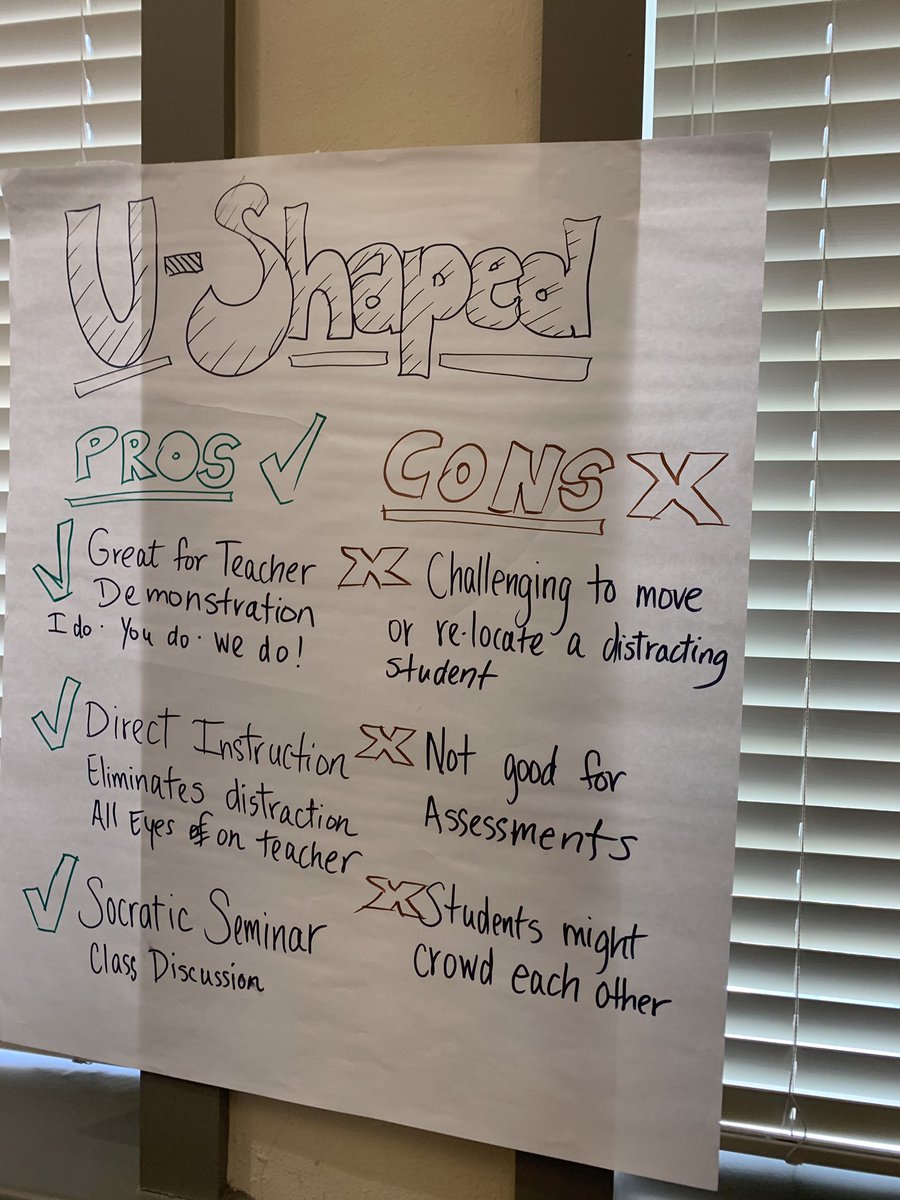 U-Shaped
PROS
Great for Teacher
Demonstration
I do. You do. We do!
Direct Instruction
Eliminates distraction
All Eyes on teacher
Socratic Seminar
Class Discussion
CONS X
X Challenging to move
or re-locate a distracting
student
X Not good for
Assessments
X Students might
crowd each other